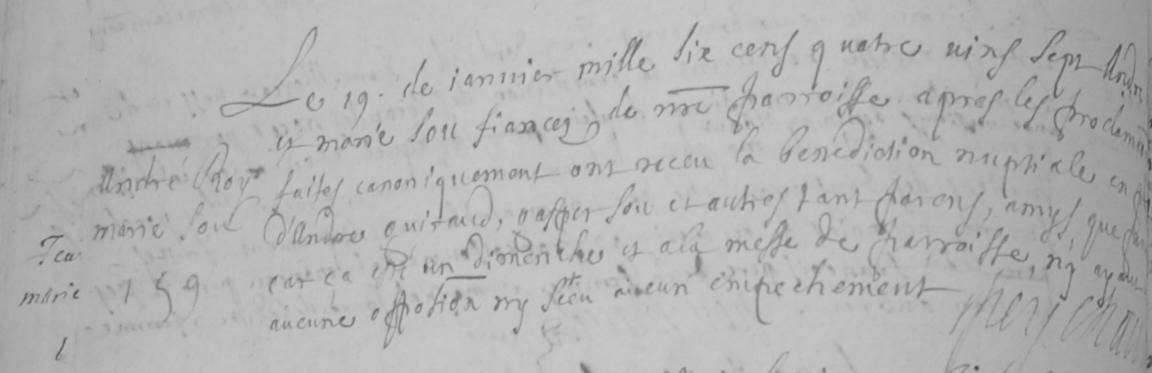 Le 19. de ianvier mille six cens quatre vins sept
et marie sou fiancez de nre parroisse apres les proclem
André Roy
faites canoniquement ont receu la benediction nuptiale en
marie sou
d'Andre guiraud, gasper sou et autres tant parens, amys, que
Jea
car ça eté un dimenche et a la messe de parroisse, ny ayant
marie
159
aucune opposion ny aucun empechement